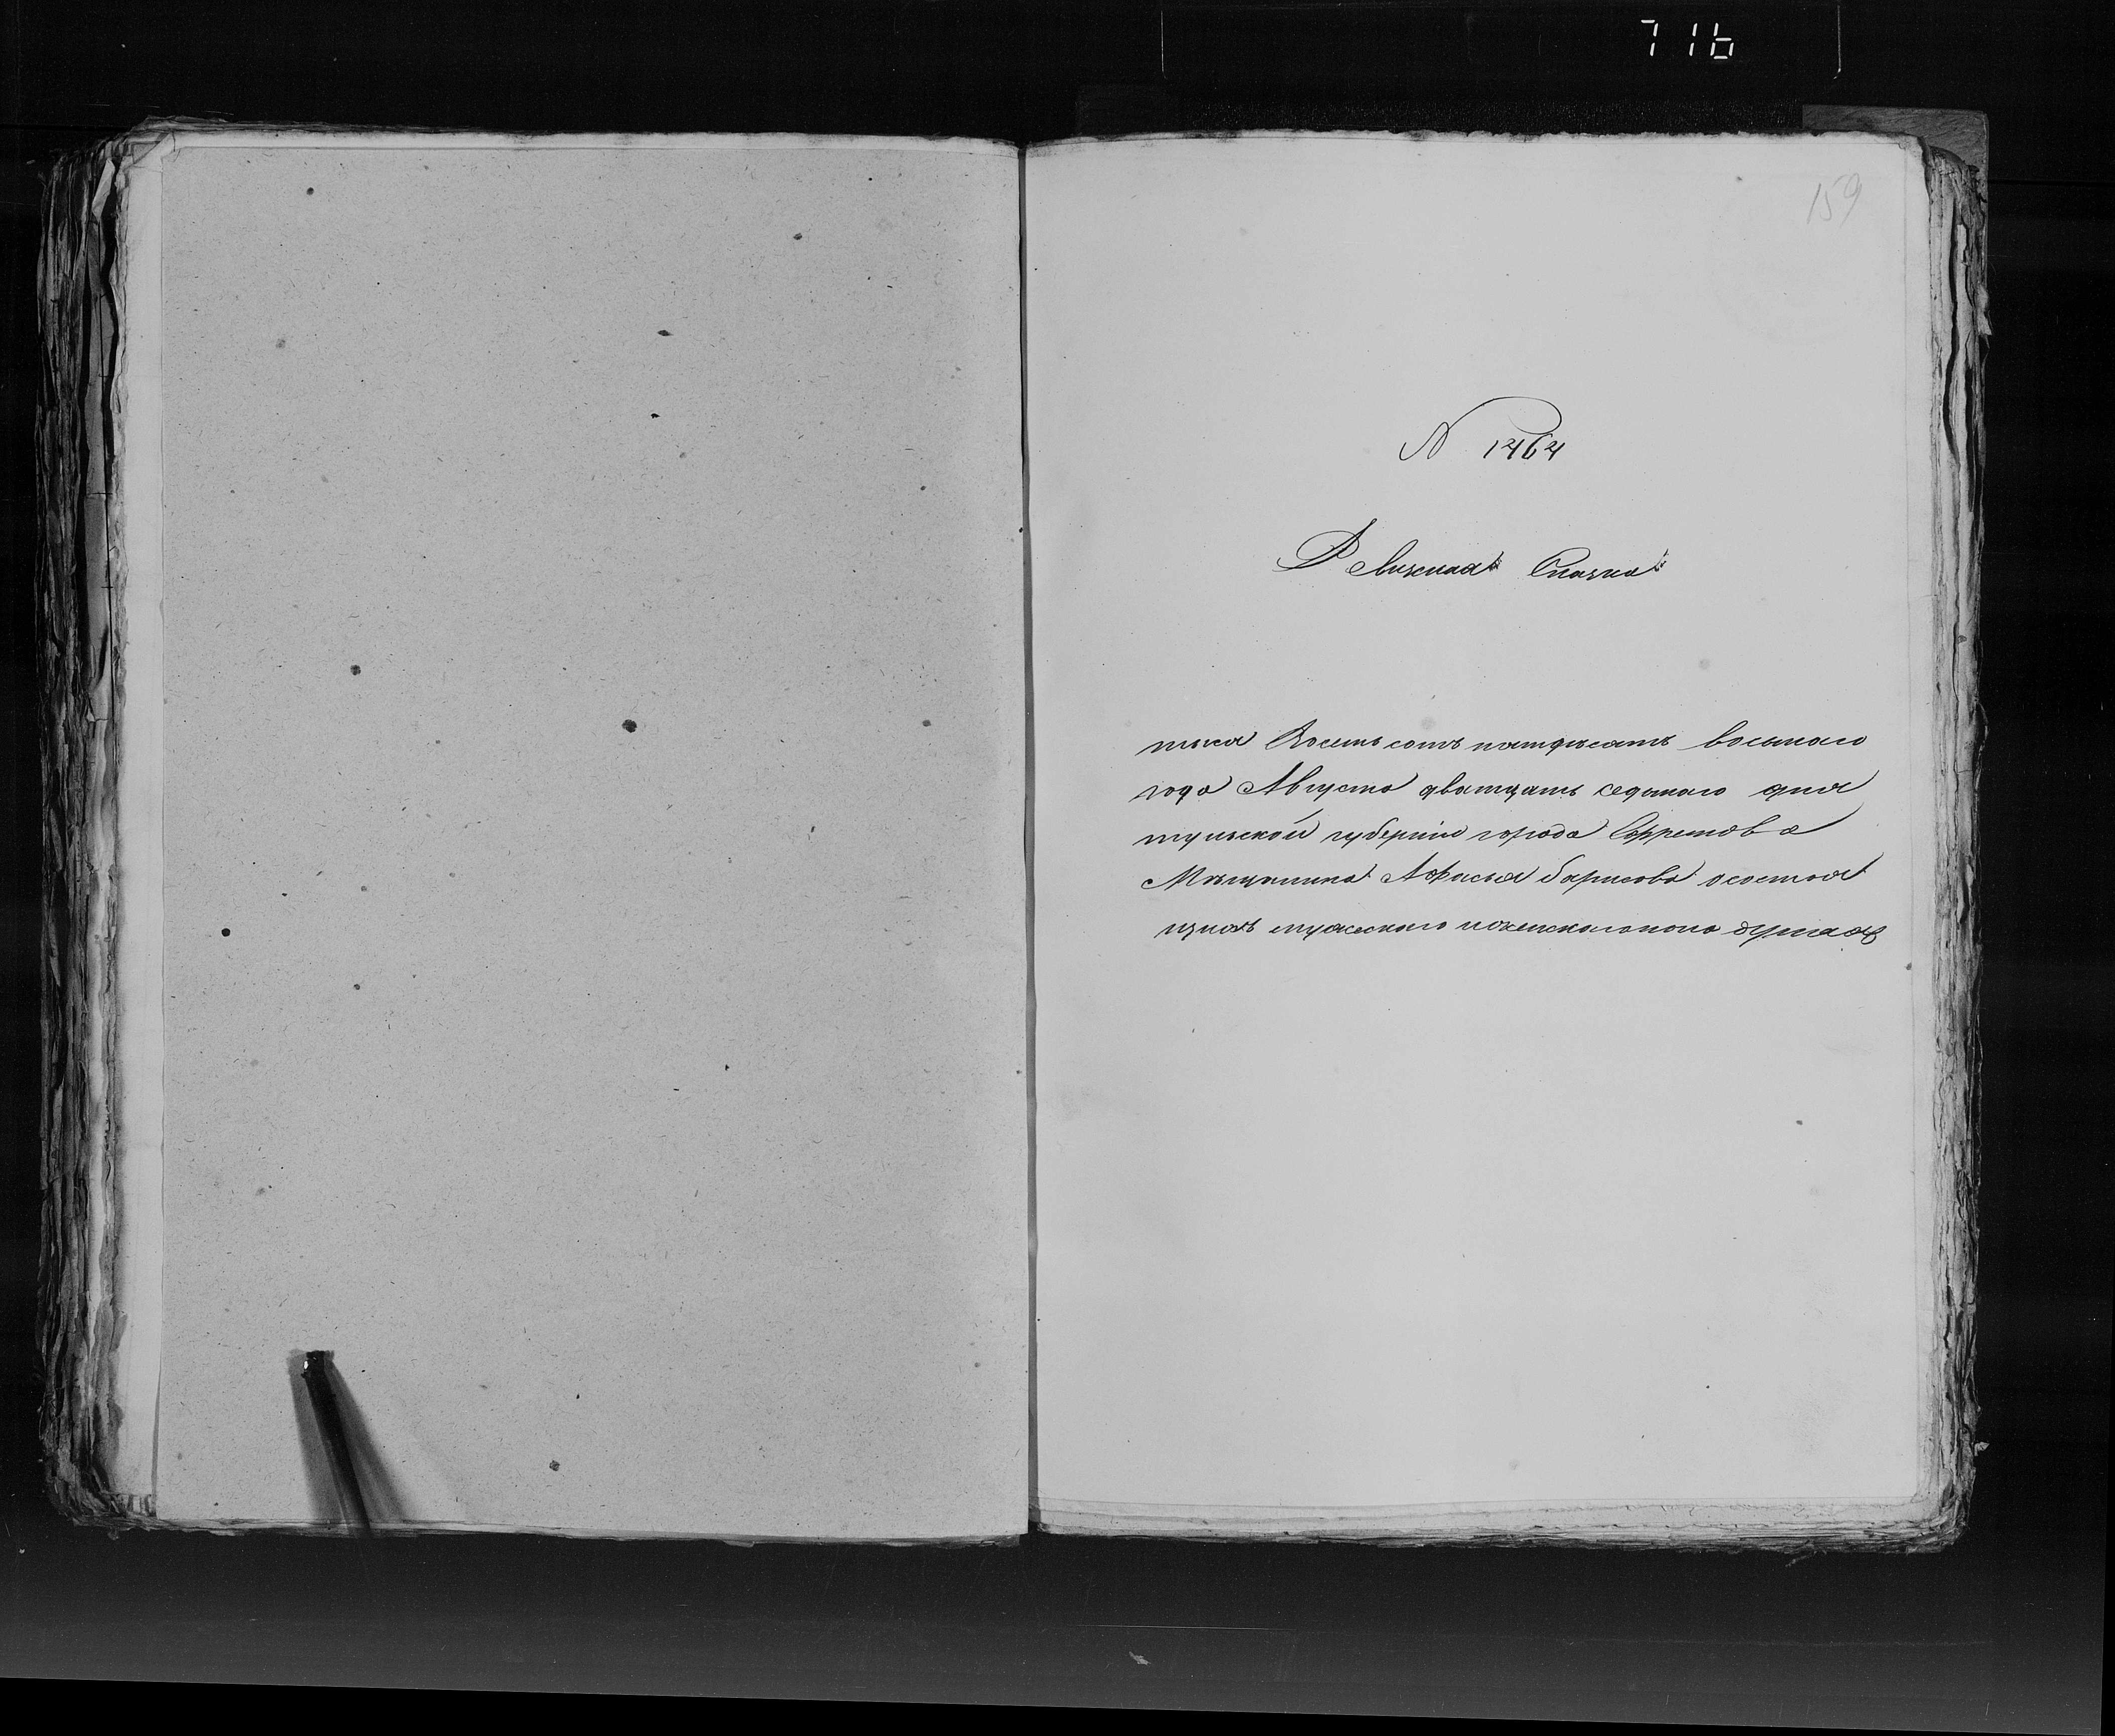 716
159
N 1464
Ревизская Сказка
тысеа Восемь сотъ пятдѣсятъ восьмаго
года Августа дватцать седьмаго дня
тульской губерніи города Ефремова
Мѣщанина Афасья Барисова осостоя
щихъ мужескаго иженскаго пола душахъ